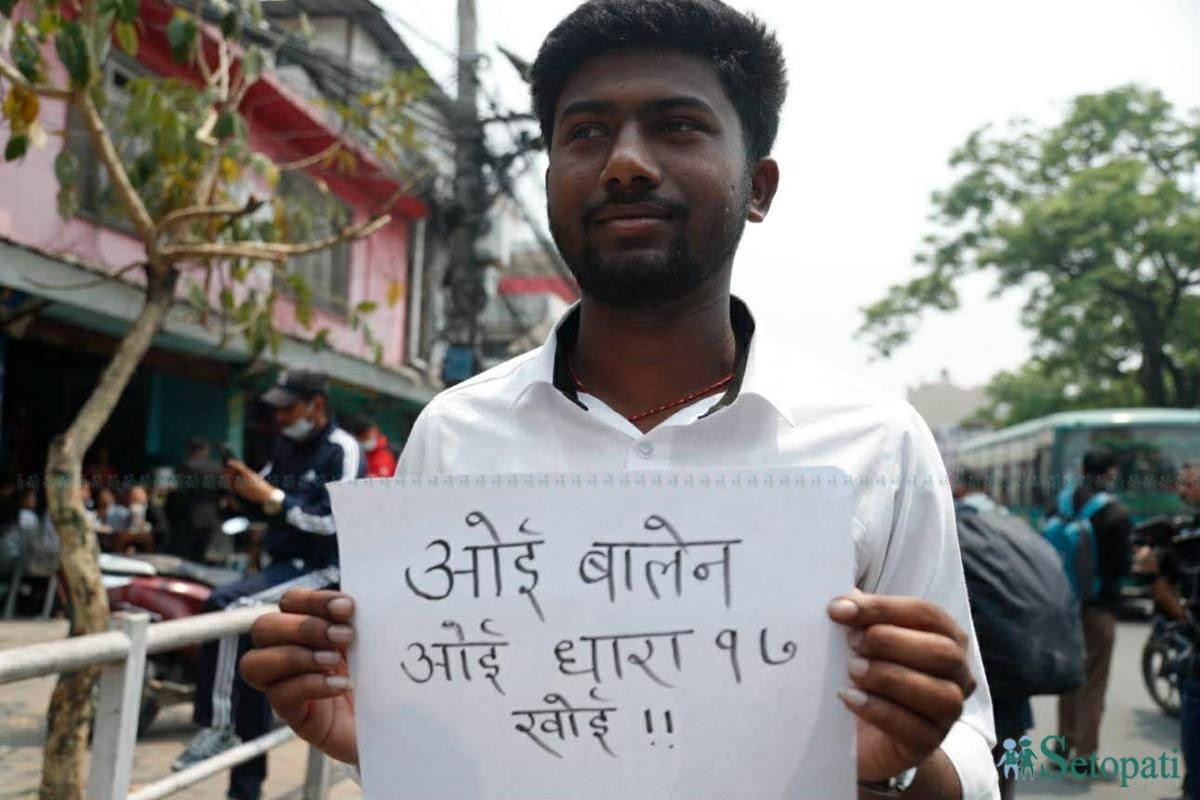 ओई बालेन
ओई धारा १७
खोई !!
Setopati